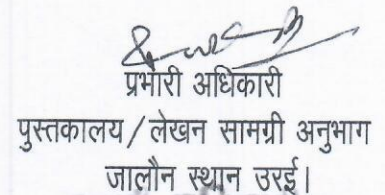 प्रभारी अधिकारी
पुस्तकालय/लेखन सामग्री अनुभाग
जालौन स्थान उरई।